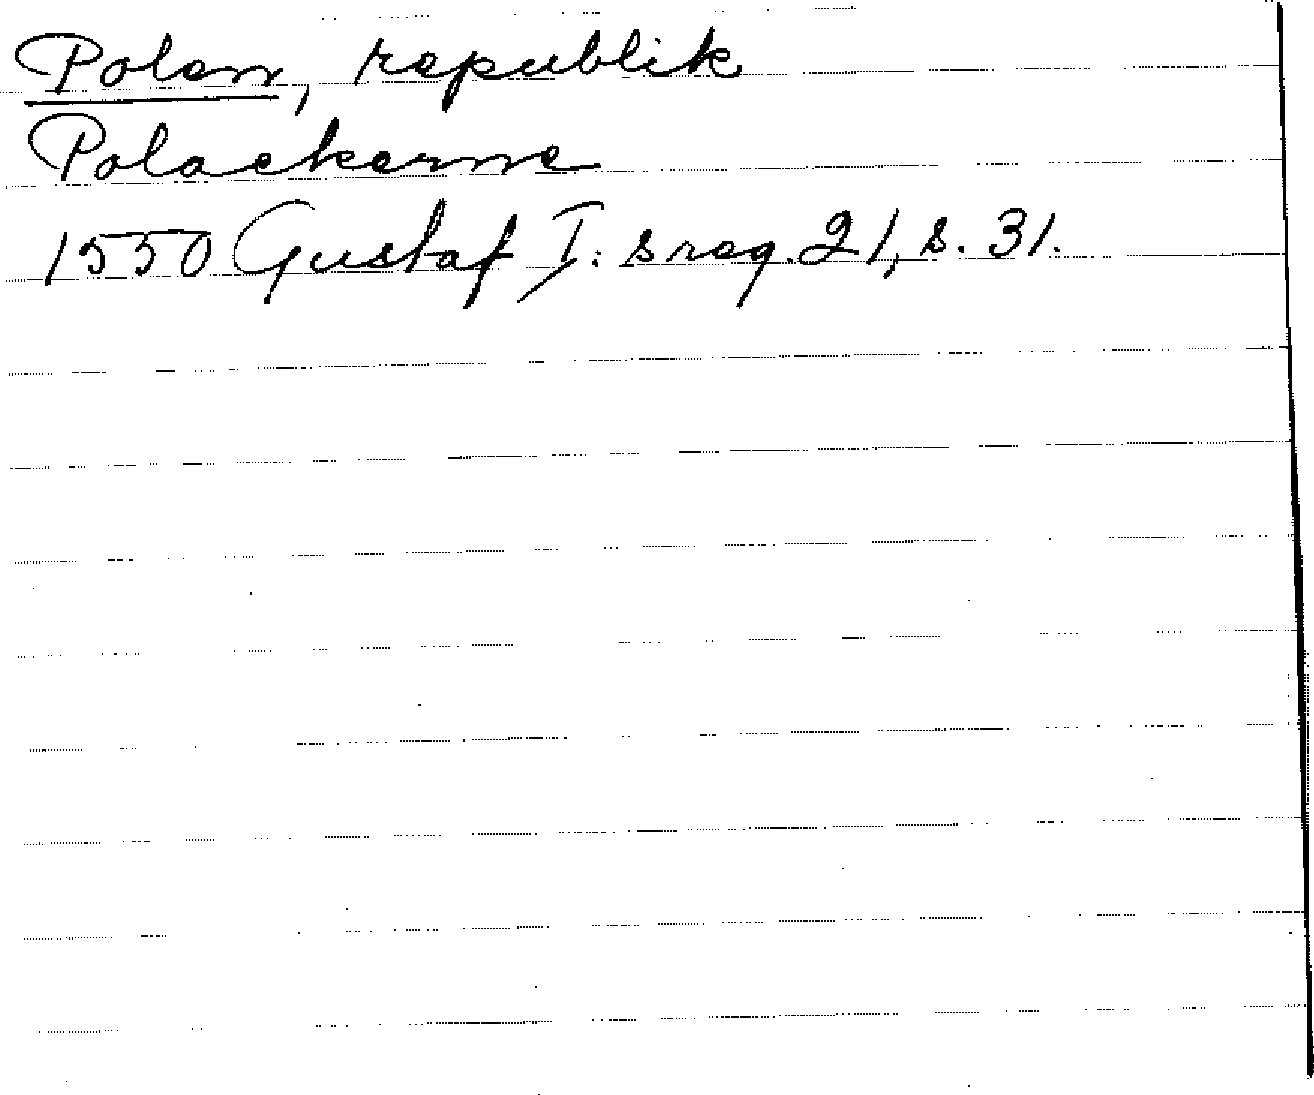 Polen, republik
Polackerne
1550 Gustaf I:s reg. 21, s. 31.